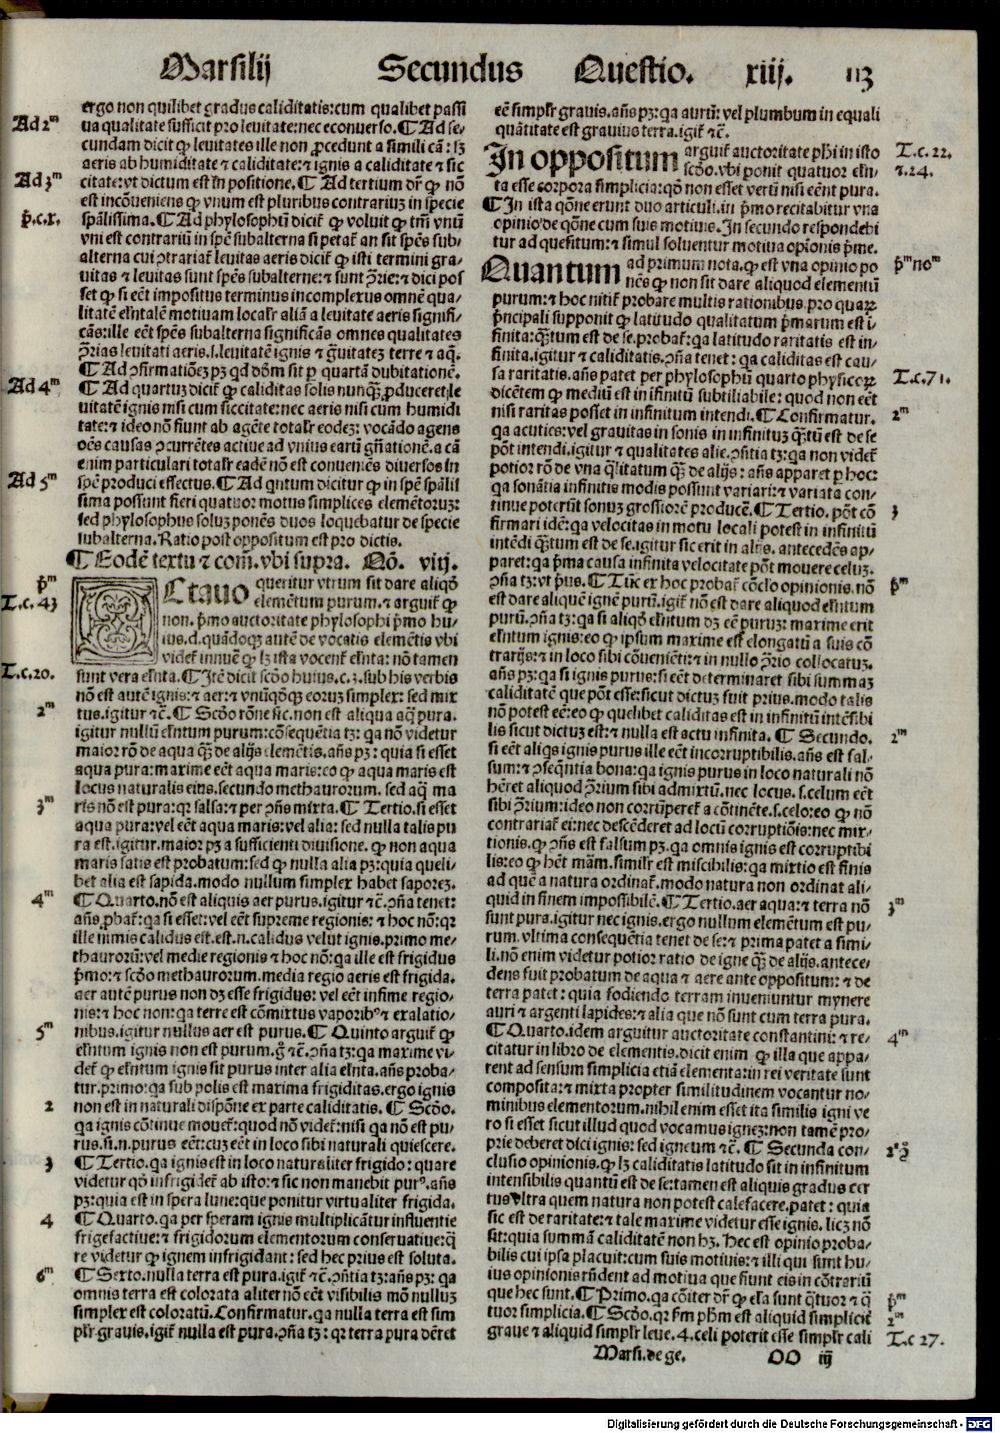 Marsilij Secundus Questio. xiij. 113
ergo non quilibet gradus caliditatis: cum qualibet passi
Ad 2m
ua qualitate sufficit pro leuitate: nec econuerso. ¶ Ad se-
cundam dicit̄ ꝙ leuitates ille non ꝓcedunt a simili cā: lꝫ
aeris ab humiditate ⁊ caliditate: ⁊ ignis a caliditate ⁊ sic
Ad 3m
citate: vt dictum est in positione. ¶ Ad tertium dr̄ ꝙ nō
est incōueniens ꝙ vnum est pluribus contrariuꝫ in specie
p̄. c. x.
spālissima. ¶ Ad phylosophū dicit̄ ꝙ voluit ꝙ tm̄ vnū
vni est contrariū in spē subalterna si petat̄ an sit spēs sub-
alterna cui ꝯtrariat̄ leuitas aeris dicit̄ ꝙ isti termini gra-
uitas ⁊ leuitas sunt spēs subalterne: ⁊ sunt ꝯrie: ⁊ dici pos
set ꝙ si eēt impositus terminus incomplexus omnē qua-
litatē elntalē motiuam localr̄ aliā a leuitate aeris signifi-
cās: ille eēt spēs subalterna significās omnes qualitates
ꝯrias leuitati aeris. s. leuitatē ignis ⁊ gͣuitateꝫ terre ⁊ aq̄.
¶ Ad ꝯfirmatiōeꝫ pꝫ qd dōm sit ꝑ quartā dubitationē.
Ad 4m
¶ Ad quartuꝫ dicit̄ ꝙ caliditas solis nunqͣꝫ ꝓduceret le
uitatē ignis nisi cum siccitate: nec aeris nisi cum humidi
tate: ⁊ ideo nō fiunt ab agēte totalr̄ eodeꝫ: vocādo agens
oēs causas ꝯcurrētes actiue ad vnius earū gn̄ationē. a cā
enim particulari totalr̄ eadē nō est conueniēs diuersos in
Ad 5m
spē produci effectus. ¶ Ad qntum dicitur ꝙ in spē spālis
sima possunt fieri quatuor motus simplices elemētoruꝫ:
sed phylosophus soluꝫ ponēs duos loquebatur de specie
subalterna. Ratio post oppositum est pro dictis.
¶ Eodē textu ⁊ com̄. vbi supra. Nō. viij.
p̄m
Octauo queritur vtrum sit dare aliqō
T. c. 43
elemētum purum. ⁊ arguit̄ ꝙ
non. p̄mo auctoritate phylosophi p̄mo hu-
ius. d. quādoqꝫ autē de vocatis elemētis vbi
videt̄ innuē ꝙ lꝫ ista vocent̄ elnta: nō tamen
T. c. 20.
sunt vera elnta. ¶ Itē dicit scdo huius. c. 3. sub his verbis
nō est autē ignis: ⁊ aer: ⁊ vnūqōqꝫ eoruꝫ simplex: sed mix
2m
tus. igitur ⁊c̄. ¶ Scdo rōne sic. non est aliqua aq̄ pura.
igitur nullū elntum purum: cōsequētia tꝫ: qa nō videtur
maior rō de aqua qͣꝫ de alijs elemētis. añs pꝫ: quia si esset
aqua pura: maxime eēt aqua maris: eo ꝙ aqua maris est
locus naturalis eius. secundo methaurorum. sed aq̄ ma
3m
ris nō est pura: qr salsa: ⁊ per ꝯñs mixta. ¶ Tertio. si esset
aqua pura: vel eēt aqua maris: vel alia: sed nulla talis pu
ra est. igitur. maior pꝫ a sufficienti diuisione. ꝙ non aqua
maris satis est probatum: sed ꝙ nulla alia pꝫ: quia queli-
bet alia est sapida. modo nullum simplex habet saporeꝫ.
4m
¶ Quarto. nō est aliquis aer purus. igitur ⁊c̄. ꝯña tenet:
añs ꝓbat̄: qa si esset: vel eēt supreme regionis: ⁊ hoc nō: qr
ille nimis calidus est. est. n. calidus velut ignis. primo me-
thaurorū: vel medie regionis ⁊ hoc nō: qa ille est frigidus
p̄mo: ⁊ scdo methaurorum. media regio aeris est frigida.
aer autē purus non dꝫ esse frigidus: vel eēt infime regio-
nis: ⁊ hoc non: qa terre est cōmixtus vaporibꝰ ⁊ exalatio-
5m
nibus. igitur nullus aer est purus. ¶ Quinto arguit̄ ꝙ
elntum ignis non est purum. g̊ ⁊c̄. ꝯña tꝫ: qa maxime vi-
det̄ ꝙ elntum ignis sit purus inter alia elnta. añs proba-
tur. primo: qa sub polis est maxima frigiditas. ergo ignis
2
non est in naturali dispōne ex parte caliditatis. ¶ Scdo.
qa ignis cōtinue mouet̄: quod nō videt̄: nisi qa nō est pu-
rus. si. n. purus eēt: cuꝫ eēt in loco sibi naturali quiescere.
3
¶ Tertio. qa ignis est in loco naturaliter frigido: quare
videtur qō infrigidet̄ ab isto: ⁊ sic non manebit purꝰ. añs
pꝫ: quia est in spera lune: que ponitur virtualiter frigida.
4
¶ Quarto. qa per speram ignis multiplicātur influentie
frigefactiue: ⁊ frigidorum elementorum conseruatiue: q̄
re videtur ꝙ ignem infrigidant: sed hec prius est soluta.
6m
¶ Sexto. nulla terra est pura. igit̄ ⁊c̄. ꝯñtia tꝫ: añs pꝫ: qa
omnis terra est colorata aliter nō eēt visibilis mō nulluꝫ
simplex est coloratū. Confirmatur. qa nulla terra est sim
plr̄ grauis. igit̄ nulla est pura. ꝯña tꝫ: qr terra pura dēret
eē simplr̄ grauis. añs pꝫ: qa aurū: vel plumbum in equali
quātitate est grauius terra. igit̄ ⁊c̄.
In oppositum arguit̄ auctoritate phi in isto
T. c. 22.
scdo. vbi ponit quatuor eln-
⁊. 24.
ta esse corpora simplicia: qō non esset verū nisi eēnt pura.
¶ In ista qōne erunt duo articuli. in p̄mo recitabitur vna
opinio de qōne cum suis motiuis. In secundo respondebi
tur ad quesitum: ⁊ simul soluentur motiua opionis p̄me.
Quantum ad primum nota. ꝙ est vna opinio po
p̄m nom
nēs ꝙ non sit dare aliquod elementū
purum: ⁊ hoc nitit̄ probare multis rationibus. pro quaꝝ
p̄ncipali supponit ꝙ latitudo qualitatum p̄marum est i-
finita: qͣtum est de se. probat̄: qa latitudo raritatis est in-
finita. igitur ⁊ caliditatis. ꝯña tenet: qa caliditas est cau-
sa raritatis. añs patet per phylosophū quarto physicoꝝ
T. c. 71.
dicētem ꝙ mediū est in infinitū subtiliabile: quod non eēt
2m
nisi raritas posset in infinitum intendi. ¶ Confirmatur.
qa acuties: vel grauitas in sonis in infinituꝫ qͣtū est de se
pōt intendi. igitur ⁊ qualitates alie. ꝯsitia tꝫ: qa non videt̄
potior rō de vna qͣlitatum qͣꝫ de alijs: añs apparet ꝑ hoc:
qa sonātia infinitis modis possunt variari: ⁊ variata con-
3
tinue poterūt sonuꝫ grossiorē producē. ¶ Tertio. pōt cō
firmari idē: qa velocitas in motu locali potest in infinitū
intēdi qͣtum est de se. igitur sic erit in alijs. antecedēs ap-
paret: qa p̄ma causa infinita velocitate pōt mouere celuꝫ.
p̄m
ꝯña tꝫ: vt p̄us. ¶ Tūc ex hoc probat̄ cōclo opinionis. nō
est dare aliquē ignē purū. igit̄ nō est dare aliquod elntum
purū. ꝯña tꝫ: qa si aliqō elntum dꝫ eē puruꝫ: maxime erit
elntum ignis: eo ꝙ ipsum maxime est elongatū a suis cō
trarijs: ⁊ in loco sibi cōuenieti: ⁊ in nullo ꝯrio collocatuꝫ.
añs pꝫ: qa si ignis purus: si eēt determinaret sibi summaꝫ
caliditatē que pōt esse: sicut dictuꝫ fuit prius. modo talis
nō potest eē: eo ꝙ quelibet caliditas est in infinitū intēsibi
2m
lis sicut dictuꝫ est: ⁊ nulla est actu infinita. ¶ Secundo.
si eēt aliqs ignis purus ille eēt incorruptibilis. añs est fal-
sum: ⁊ ꝯseqntia bona: qa ignis purus in loco naturali nō
hēret aliquod ꝯrium sibi admixtū. nec locus. s. celum eēt
sibi ꝯrium: ideo non corrūperet̄ a cōtinēte. s. celo: eo ꝙ nō
contrariat̄ ei: nec descēderet ad locū corruptiōis: nec mix-
tionis. ꝙ ꝯñs est falsum pꝫ. qa omnis ignis est corruptibi
lis: eo ꝙ hēt mām. similr̄ est miscibilis: qa mixtio est finis
ad quē a natura ordinat̄. modo natura non ordinat ali-
3m
quid in finem impossibilē. ¶ Tertio. aer aqua: ⁊ terra nō
sunt pura. igitur nec ignis. ergo nullum elemētum est pu-
rum. vltima consequētia tenet de se: ⁊ prima patet a simi-
li. nō enim videtur potior ratio de igne qͣꝫ de alijs. antece-
dens fuit probatum de aqua ⁊ aere ante oppositum: ⁊ de
terra patet: quia fodiendo terram inueniuntur mynere
auri ⁊ argenti lapides: ⁊ alia que nō sunt cum terra pura.
4m
¶ Quarto. idem arguitur auctoritate constantini: ⁊ re-
citatur in libro de elementis. dicit enim ꝙ illa que appa-
rent ad sensum simplicia etiā elementa: in rei veritate sunt
composita: ⁊ mixta propter similitudinem vocantur no-
minibus elementorum. nihil enim esset ita similis igni ve
ro si esset sicut illud quod vocamus igneꝫ: non tamē pro-
prie deberet dici ignis: sed igneum ⁊c̄. ¶ Secunda con-
clusio opinionis. ꝙ lꝫ caliditatis latitudo sit in infinitum
intensibilis quantū est de se: tamen est aliquis gradus cer
tus vltra quem natura non potest calefacere. patet: quia
sic est de raritate: ⁊ tale maxime videtur esse ignis. licꝫ nō
sit: quia summā caliditatē non hꝫ. Hec est opinio proba-
bilis cui ipsa placuit: cum suis motiuis: ⁊ illi qui sunt hu-
ius opinionis rñdent ad motiua que fiunt eis in cōtrariū
p̄m
que hec sunt. ¶ Primo. qa cōiter dr̄ ꝙ elta sunt qͣtuor ⁊ q̄
2m
tuor simplicia. ¶ Scdo. qr fm phm est aliquid simplicit̄
T. c 27.
graue ⁊ aliquid simplr̄ leue. 4. celi poterit esse simplr̄ cali
Marsi. de ge. OO iij
Digitalisierung gefördert durch die Deutsche Forschungsgemeinschaft - DFG